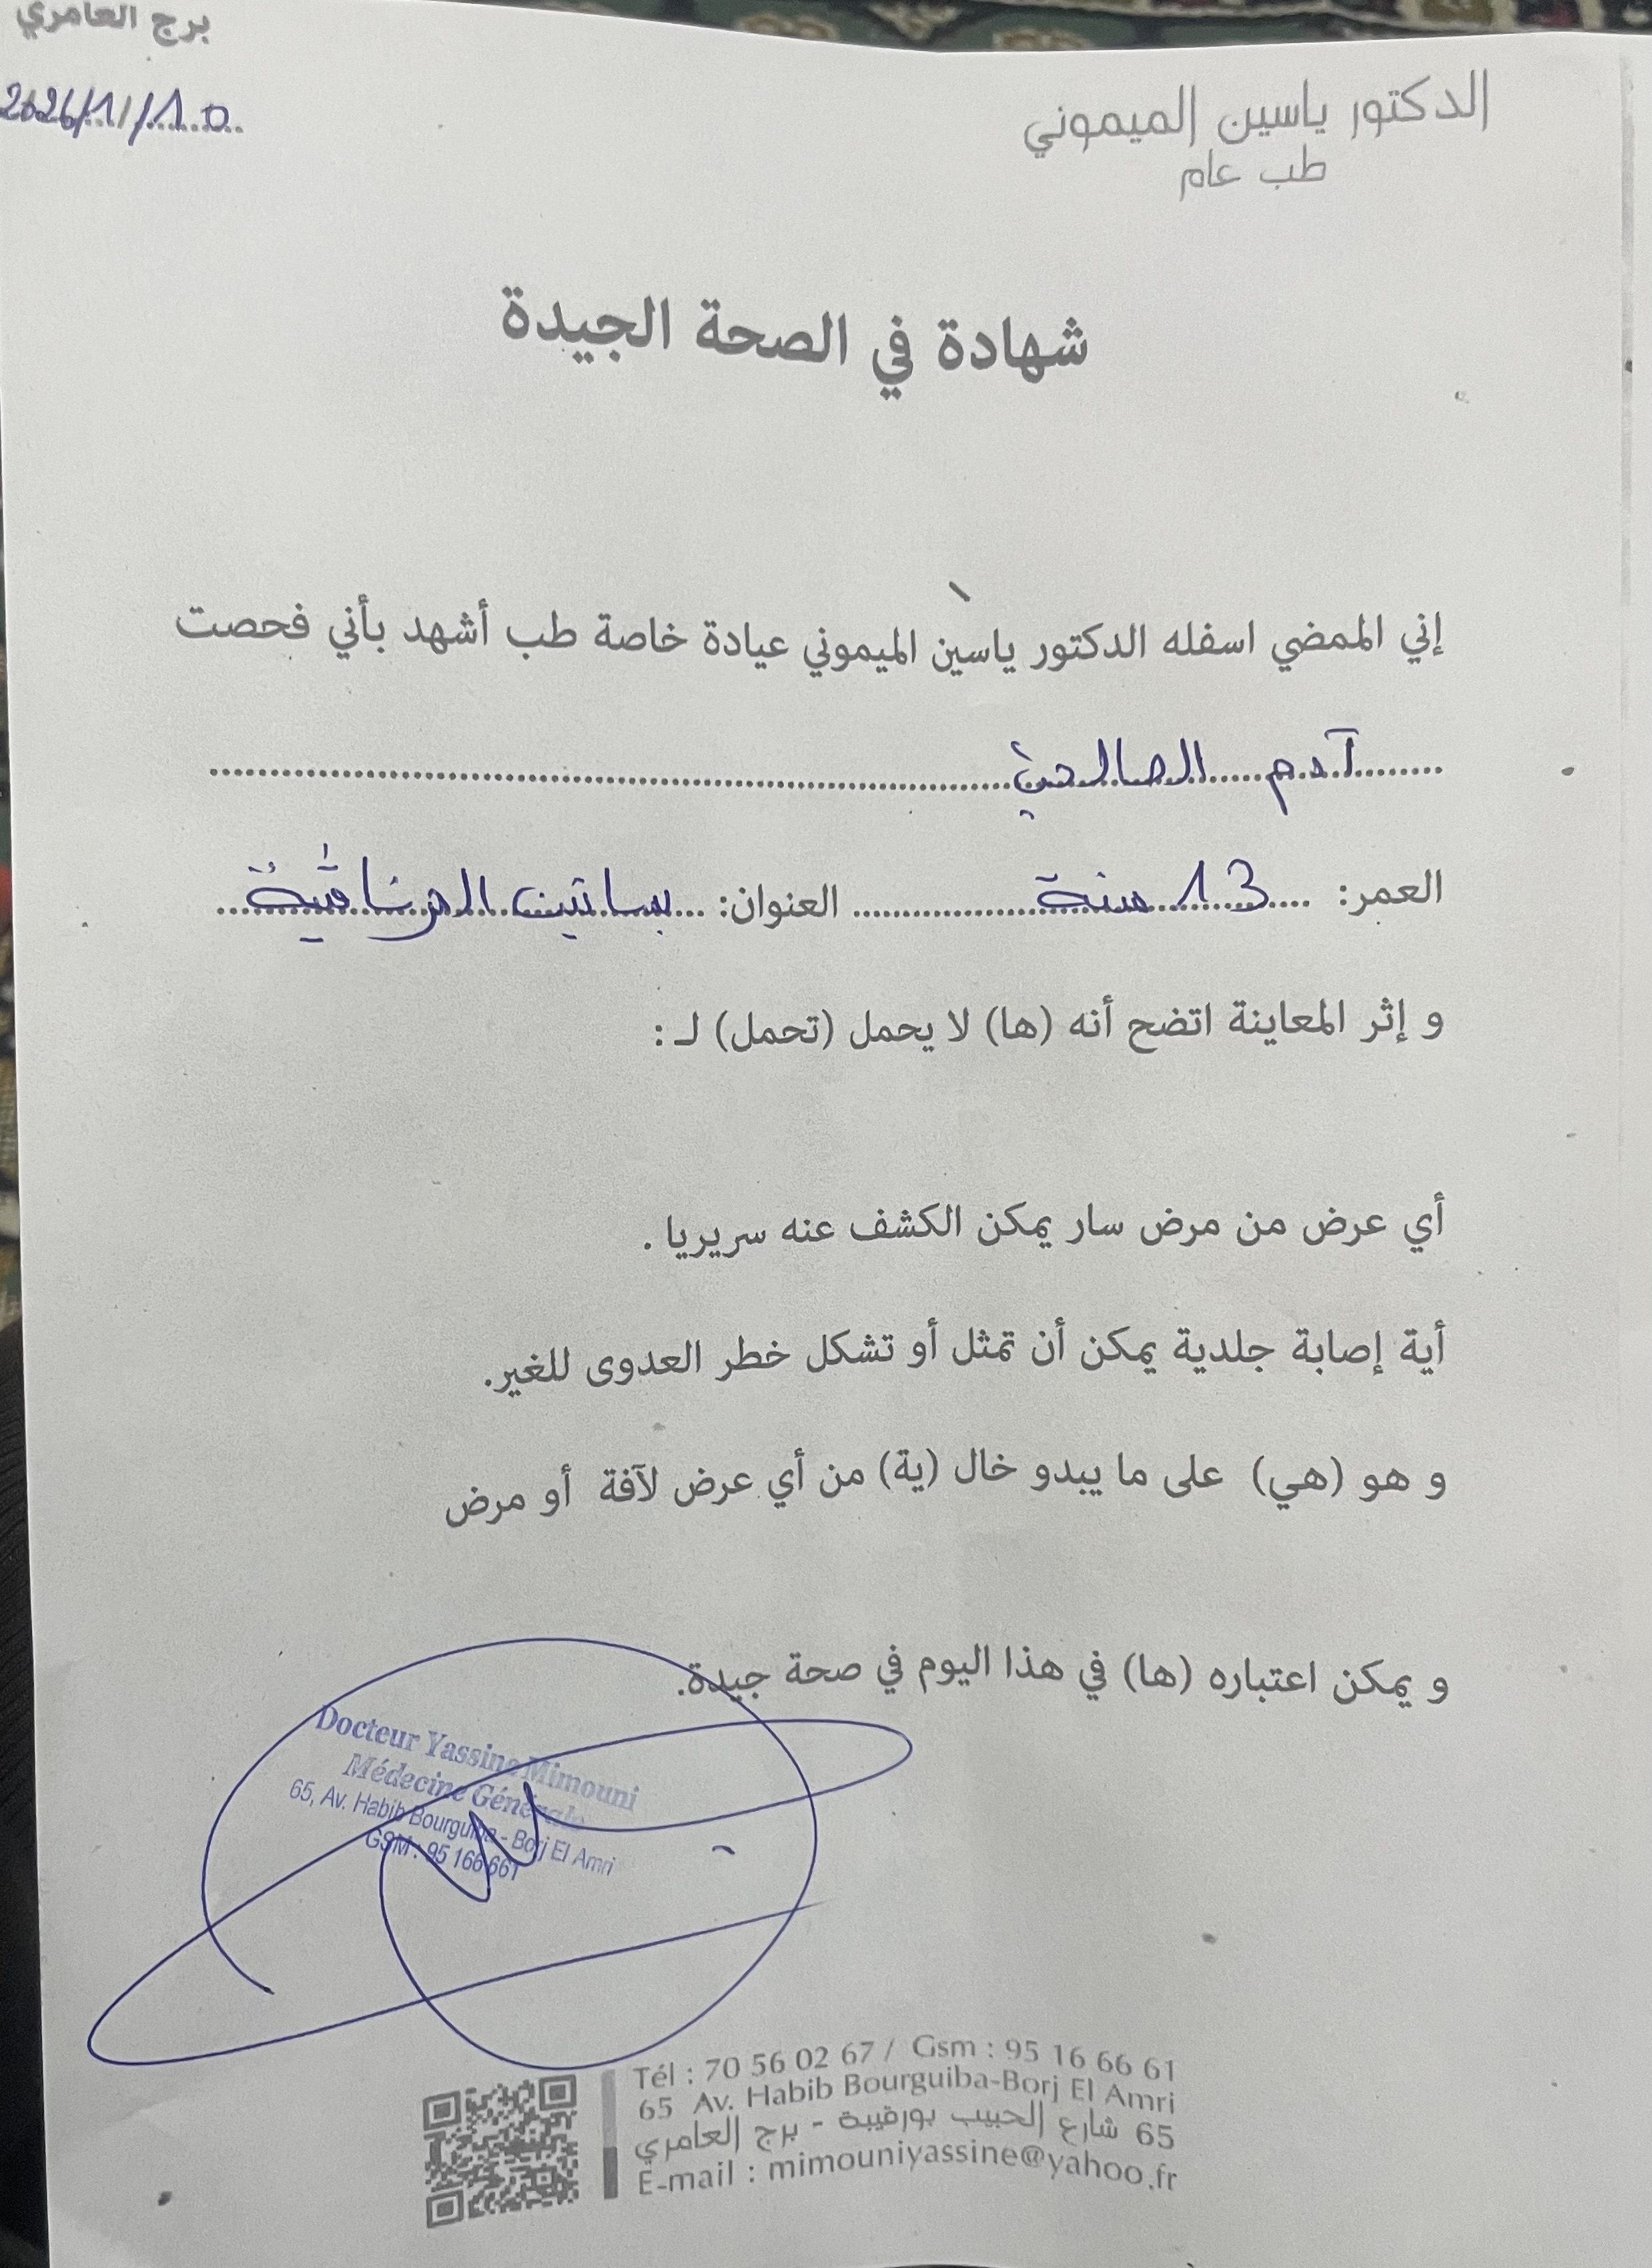 برج العامري
2026/1/10
الدكتور ياسين الميموني
طب عام
شهادة في الصحة الجيدة
إني الممضي اسفله الدكتور ياسين الميموني عيادة خاصة طب أشهد بأني فحصت
آدم الصالحي
العمر: 13 سنة العنوان: بساتين المرناقية
و إثر المعاينة اتضح أنه (ها) لا يحمل (تحمل) لـ :
أي عرض من مرض سار يمكن الكشف عنه سريريا .
أية إصابة جلدية يمكن أن تمثل أو تشكل خطر العدوى للغير.
و هو (هي) على ما يبدو خال (ية) من أي عرض لآفة أو مرض
و يمكن اعتباره (ها) في هذا اليوم في صحة جيدة.
Docteur Yassine Mimouni
Médecine Générale
65, Av. Habib Bourguiba - Borj El Amri
GSM : 95 166 661
Tél : 70 56 02 67 / Gsm : 95 16 66 61
65 Av. Habib Bourguiba-Borj El Amri
65 شارع الحبيب بورقيبة - برج العامري
E-mail : mimouniyassine@yahoo.fr